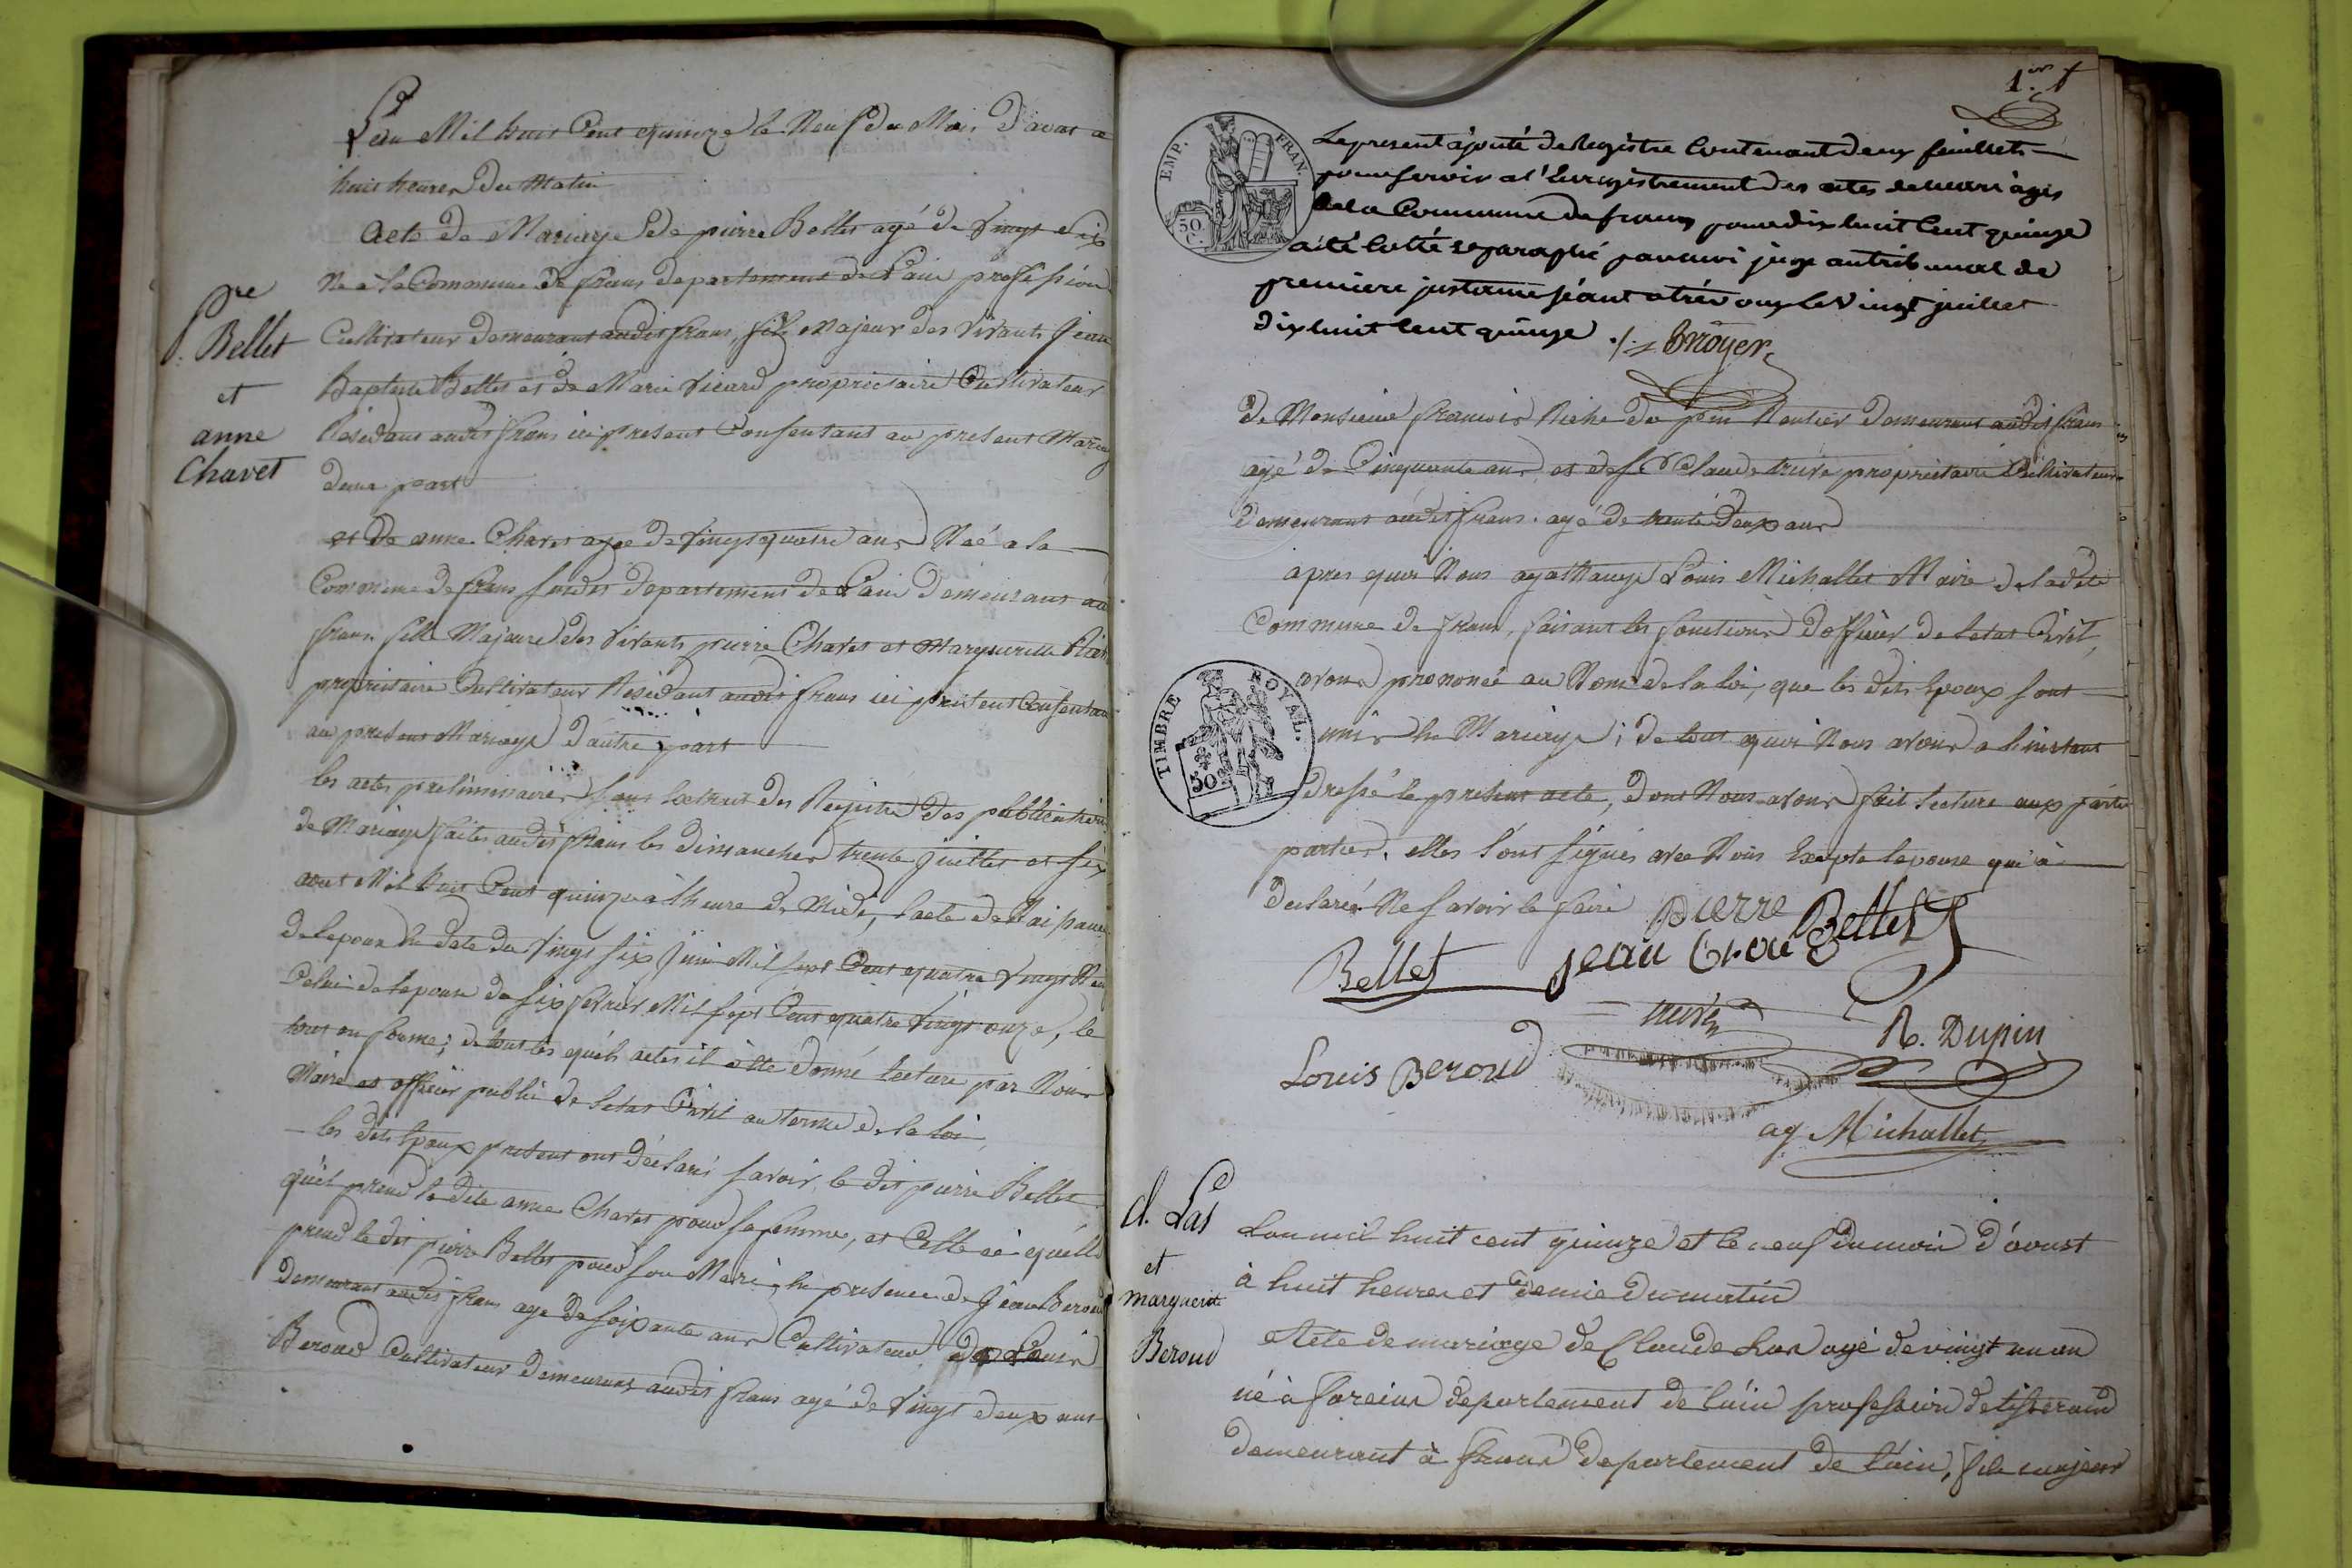 L'an Mil huit Cent quinze le Neuf du Mois D'aout a
huit heures du Matin
Acte de Mariage de pierre Bellet agé de Vingt six
Né a la Commune de frans departement de L'ain profession
Pre
Bellet
et
anne
Chavet
Cultivateur demeurant audit frans, fils Majeur des Vivants Jean
Baptiste Bellet et de Marie Vicard proprietaire Cultivateur
Residant audit frans ici present Consentant au present Mariag
dune part
et de anne Chavet agée de Vingt quatre ans Née a la
Commune de frans susdit departement de L'ain demeurant au
frans fille Majeure des Vivants pierre Chavet et Marguerite
proprietaire Cultivateur Residant audit frans ici present Consentan
au present Mariage d'autre part
les actes preliminaires sont lextrait des Registre des publication
de Mariage faites audit frans les dimanches trente Juillet et six
aout Mil huit Cent quinze a lheure de Midi, lacte de Naissance
de lepoux en date du Vingt six Juin Mil sept Cent quatre Vingt Neu
Celui de lepouse du six fevrier Mil sept Cent quatre Vingt onze, le
tout en forme; de tout les quels actes il a été donné lecture par Nous
Maire et officier public de letat Civil au terme de la loi,
les dits Epoux present ont déclaré savoir le dit pierre Bellet
qu'il prend la dite anne Chavet pour sa femme, et Celle ci quelle
prend le dit pierre Bellet pour son Mari, en presence de Jean Beroud
demeurant audit frans age de soixante ans Cultivateur de Louis
Beroud Cultivateur demeurant audit frans agé de Vingt deux ans
1er f
EMP. FRAN.
50 C.
Le present ajouté de Registre Contenant deux feuillets
pour servir a l'Enregistrement des actes de mariages
de la Commune de frans pour dix huit Cent quinze
a été Cotté et paraphé par moi juge au tribunal de
premiere instance séant a trévoux le Vingt juillet
dix huit Cent quinze ./. Broyer
de Monsieur francois Riche du pin Rentier demeurant audit frans
agé de Cinquante ans, et de sr Claude trève proprietaire Cultivateur
demeurant audit frans. agé de trente deux ans
apres quoi Nous agathange Louis Michallet Maire de la dite
Commune de frans, faisant les fonctions d'officier de letat Civil,
avons prononcé au Nom de la loi, que les dits Epoux sont
TIMBRE ROYAL.
50
unis en Mariage; de tout quoi Nous avons a linstant
dressé le present acte, dont Nous avons fait lecture aux partie
parties, elles l'ont signés avec Nous Excepte lepouse qui à
declaré Ne savoir le faire
pierre Bellet
Bellet Jean
Louis Beroud
R. Dupin
ag Michallet
Cl. Las
et
marguerite
Beroud
L'an mil huit cent quinze et le neuf du mois d'aoust
à huit heures et demie du matin
Acte de mariage de Claude Las agé de vingt un an
né à fareins departement de l'ain profession de tisserand
demeurant à frans departement de l'ain, fils majeur